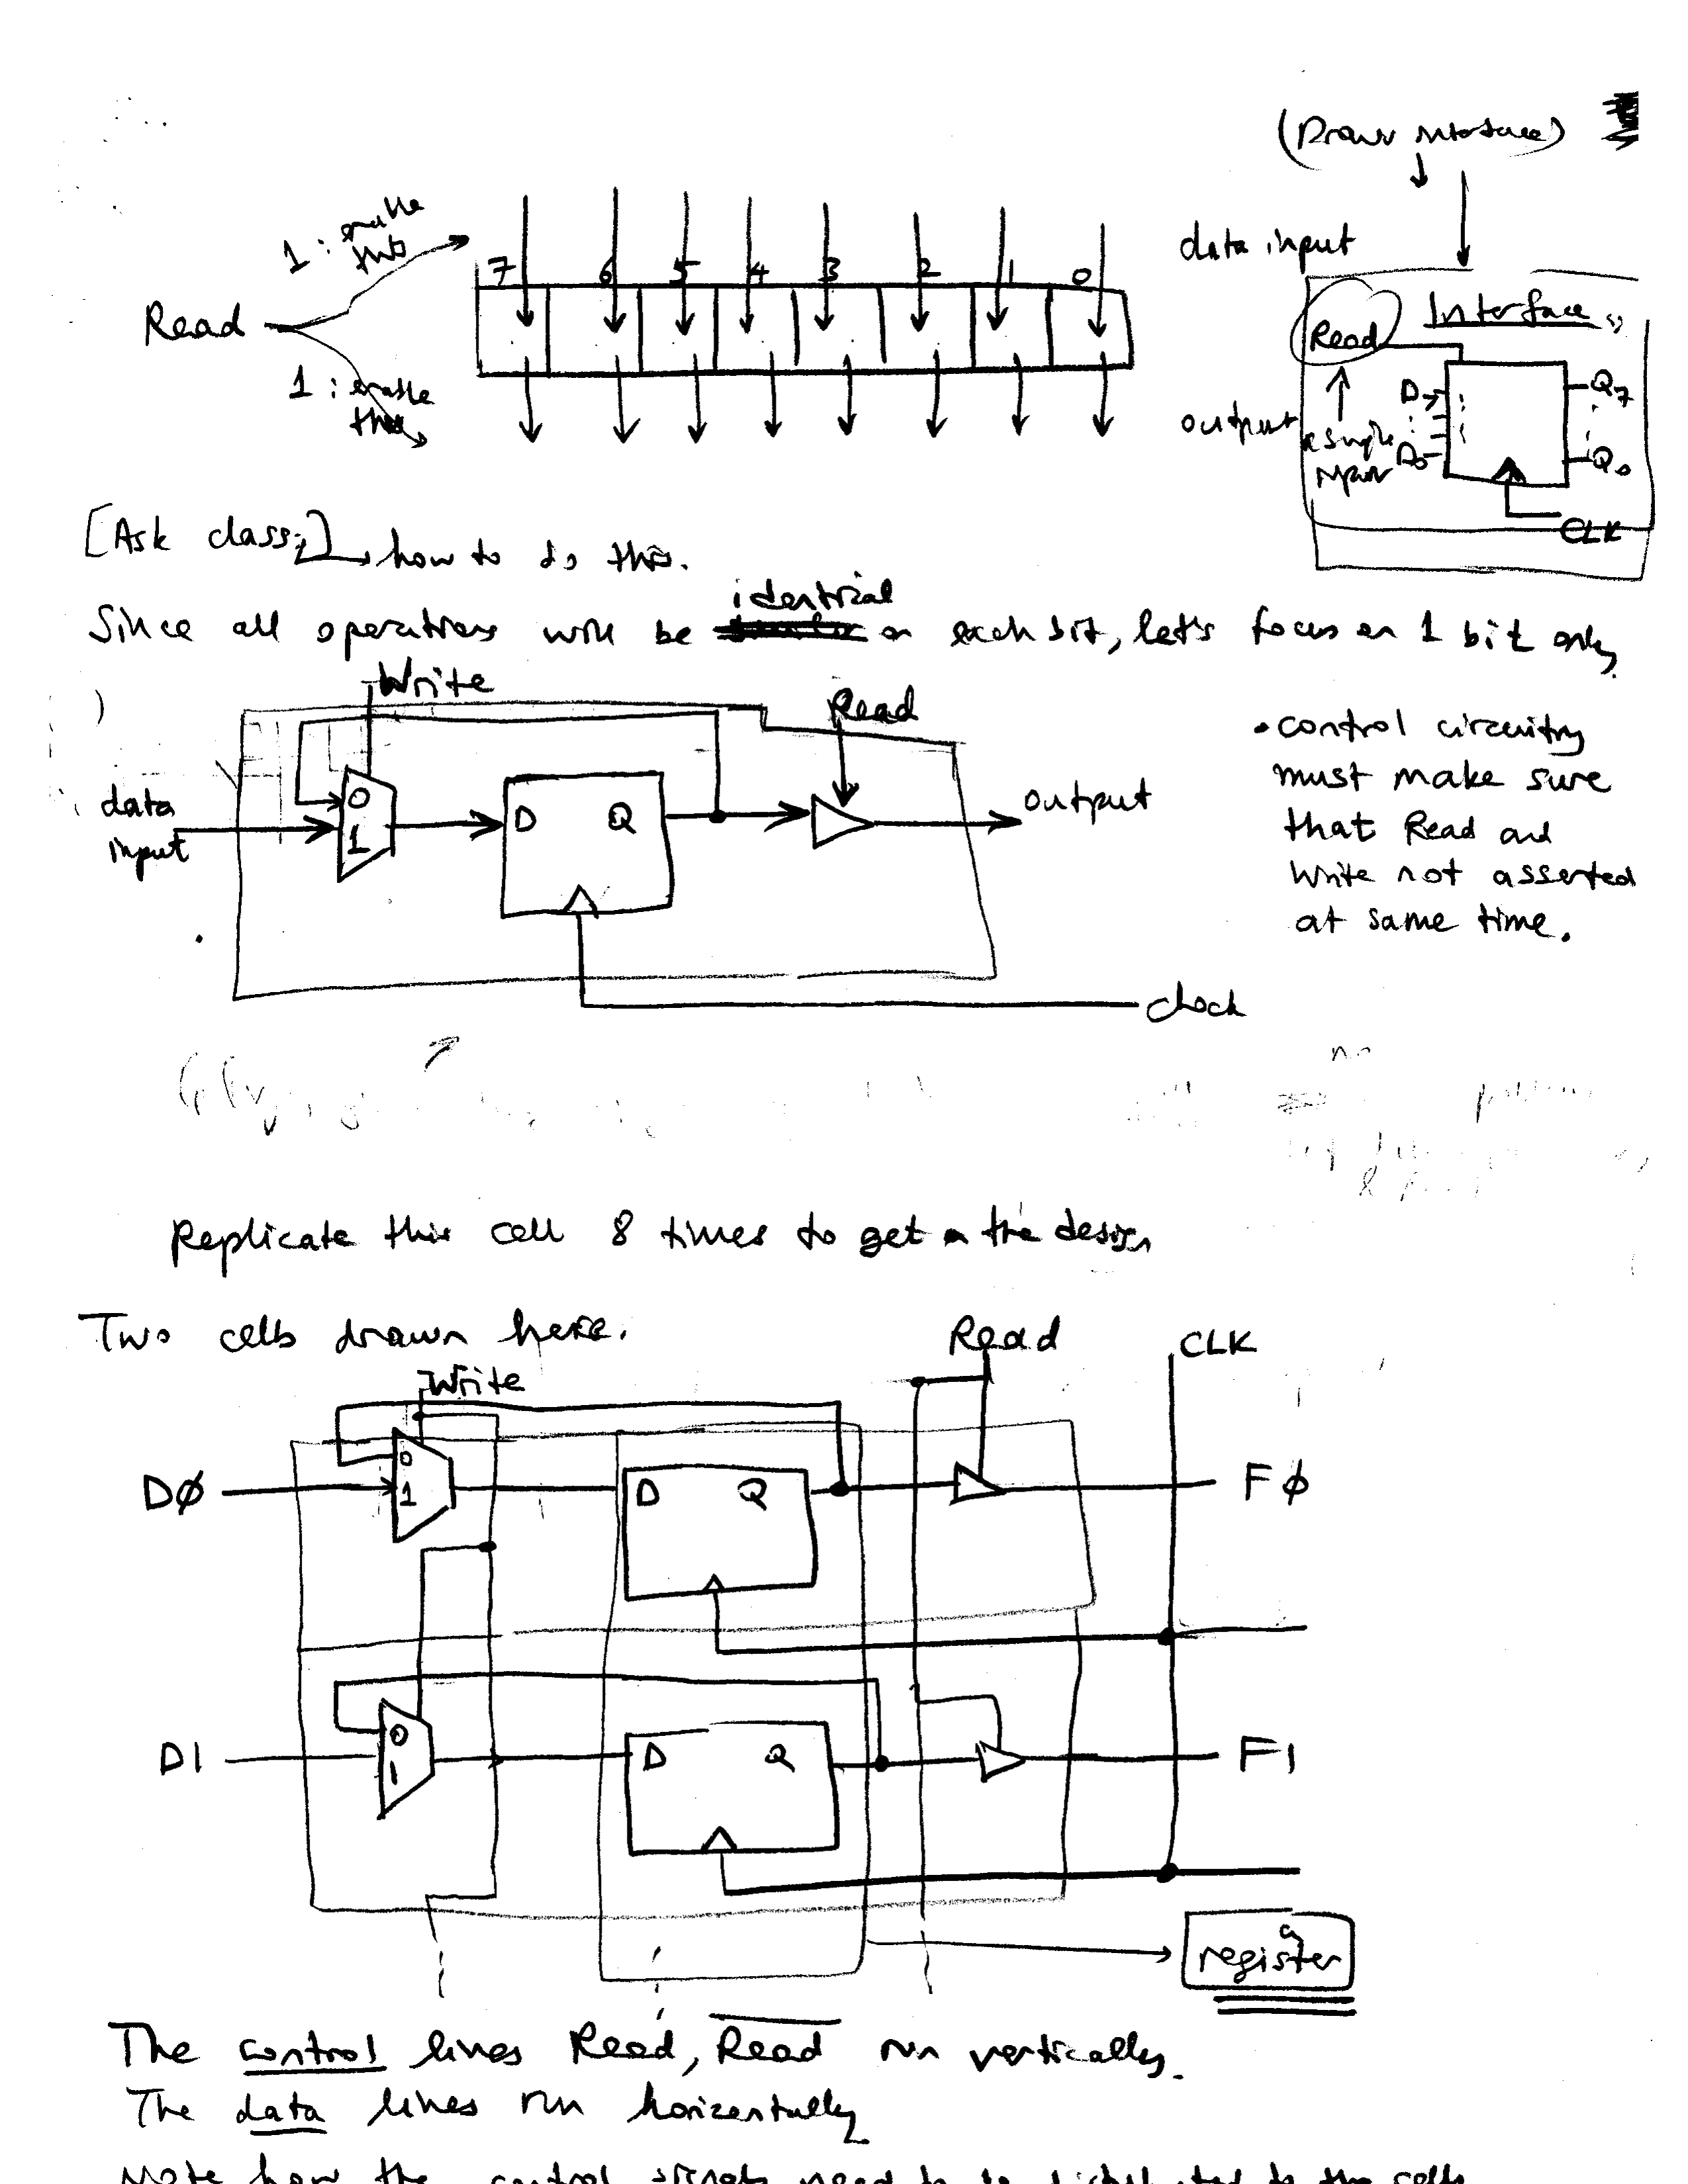 (Draw interface)
1 : enable
this
data input
7 6 5 4 3 2 1 0
Read
Interface
Read
1 : enable
this
output
a single
input
D7
D0
Q7
Q0
CLK
[Ask class:] how to do this.
identical
Since all operations will be on each bit, let's focus on 1 bit only
Write
Read
data
input
0
1
D Q
output
clock
• control circuitry
must make sure
that Read and
Write not asserted
at same time.
Replicate this cell 8 times to get the design
Two cells drawn here.
Write
Read
CLK
DØ
0
1
D Q
FØ
D1
0
1
D Q
F1
register
The control lines Read, R̅e̅a̅d̅ run vertically.
The data lines run horizontally
Note how the control signals need to be distributed to the cells